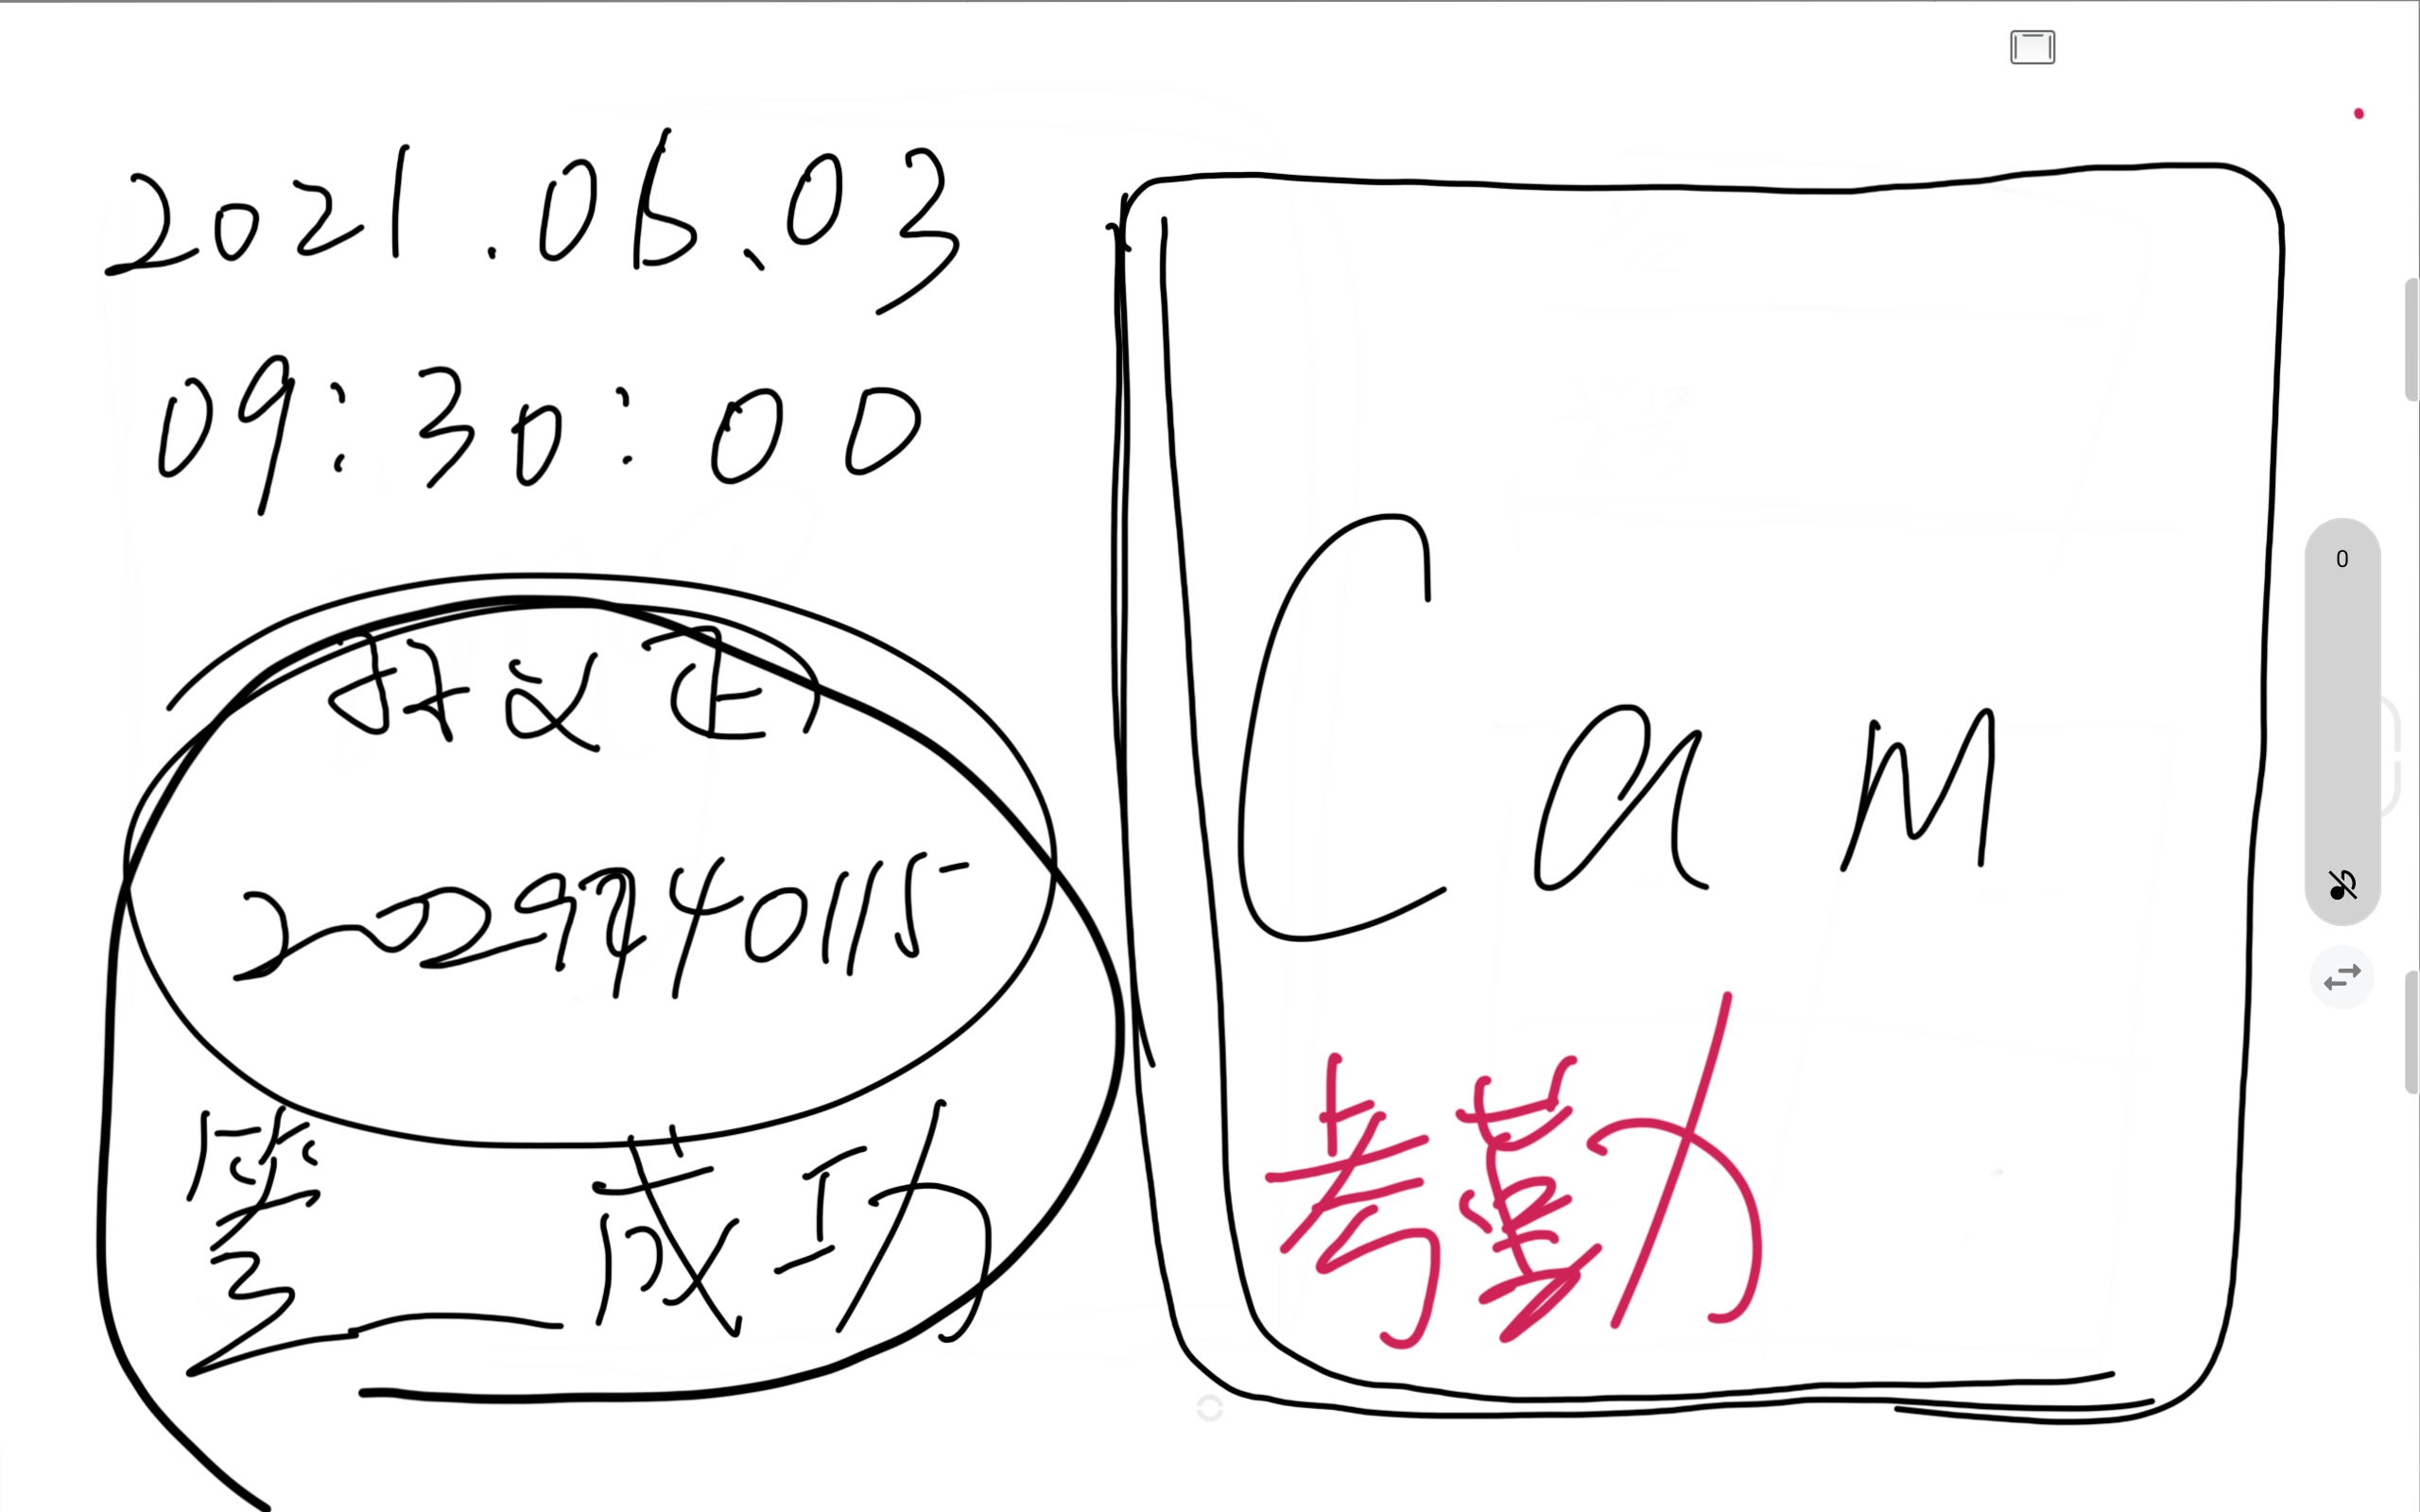 2021.06.03
09:30:00
2029940115
签到成功
Cam
考勤
0